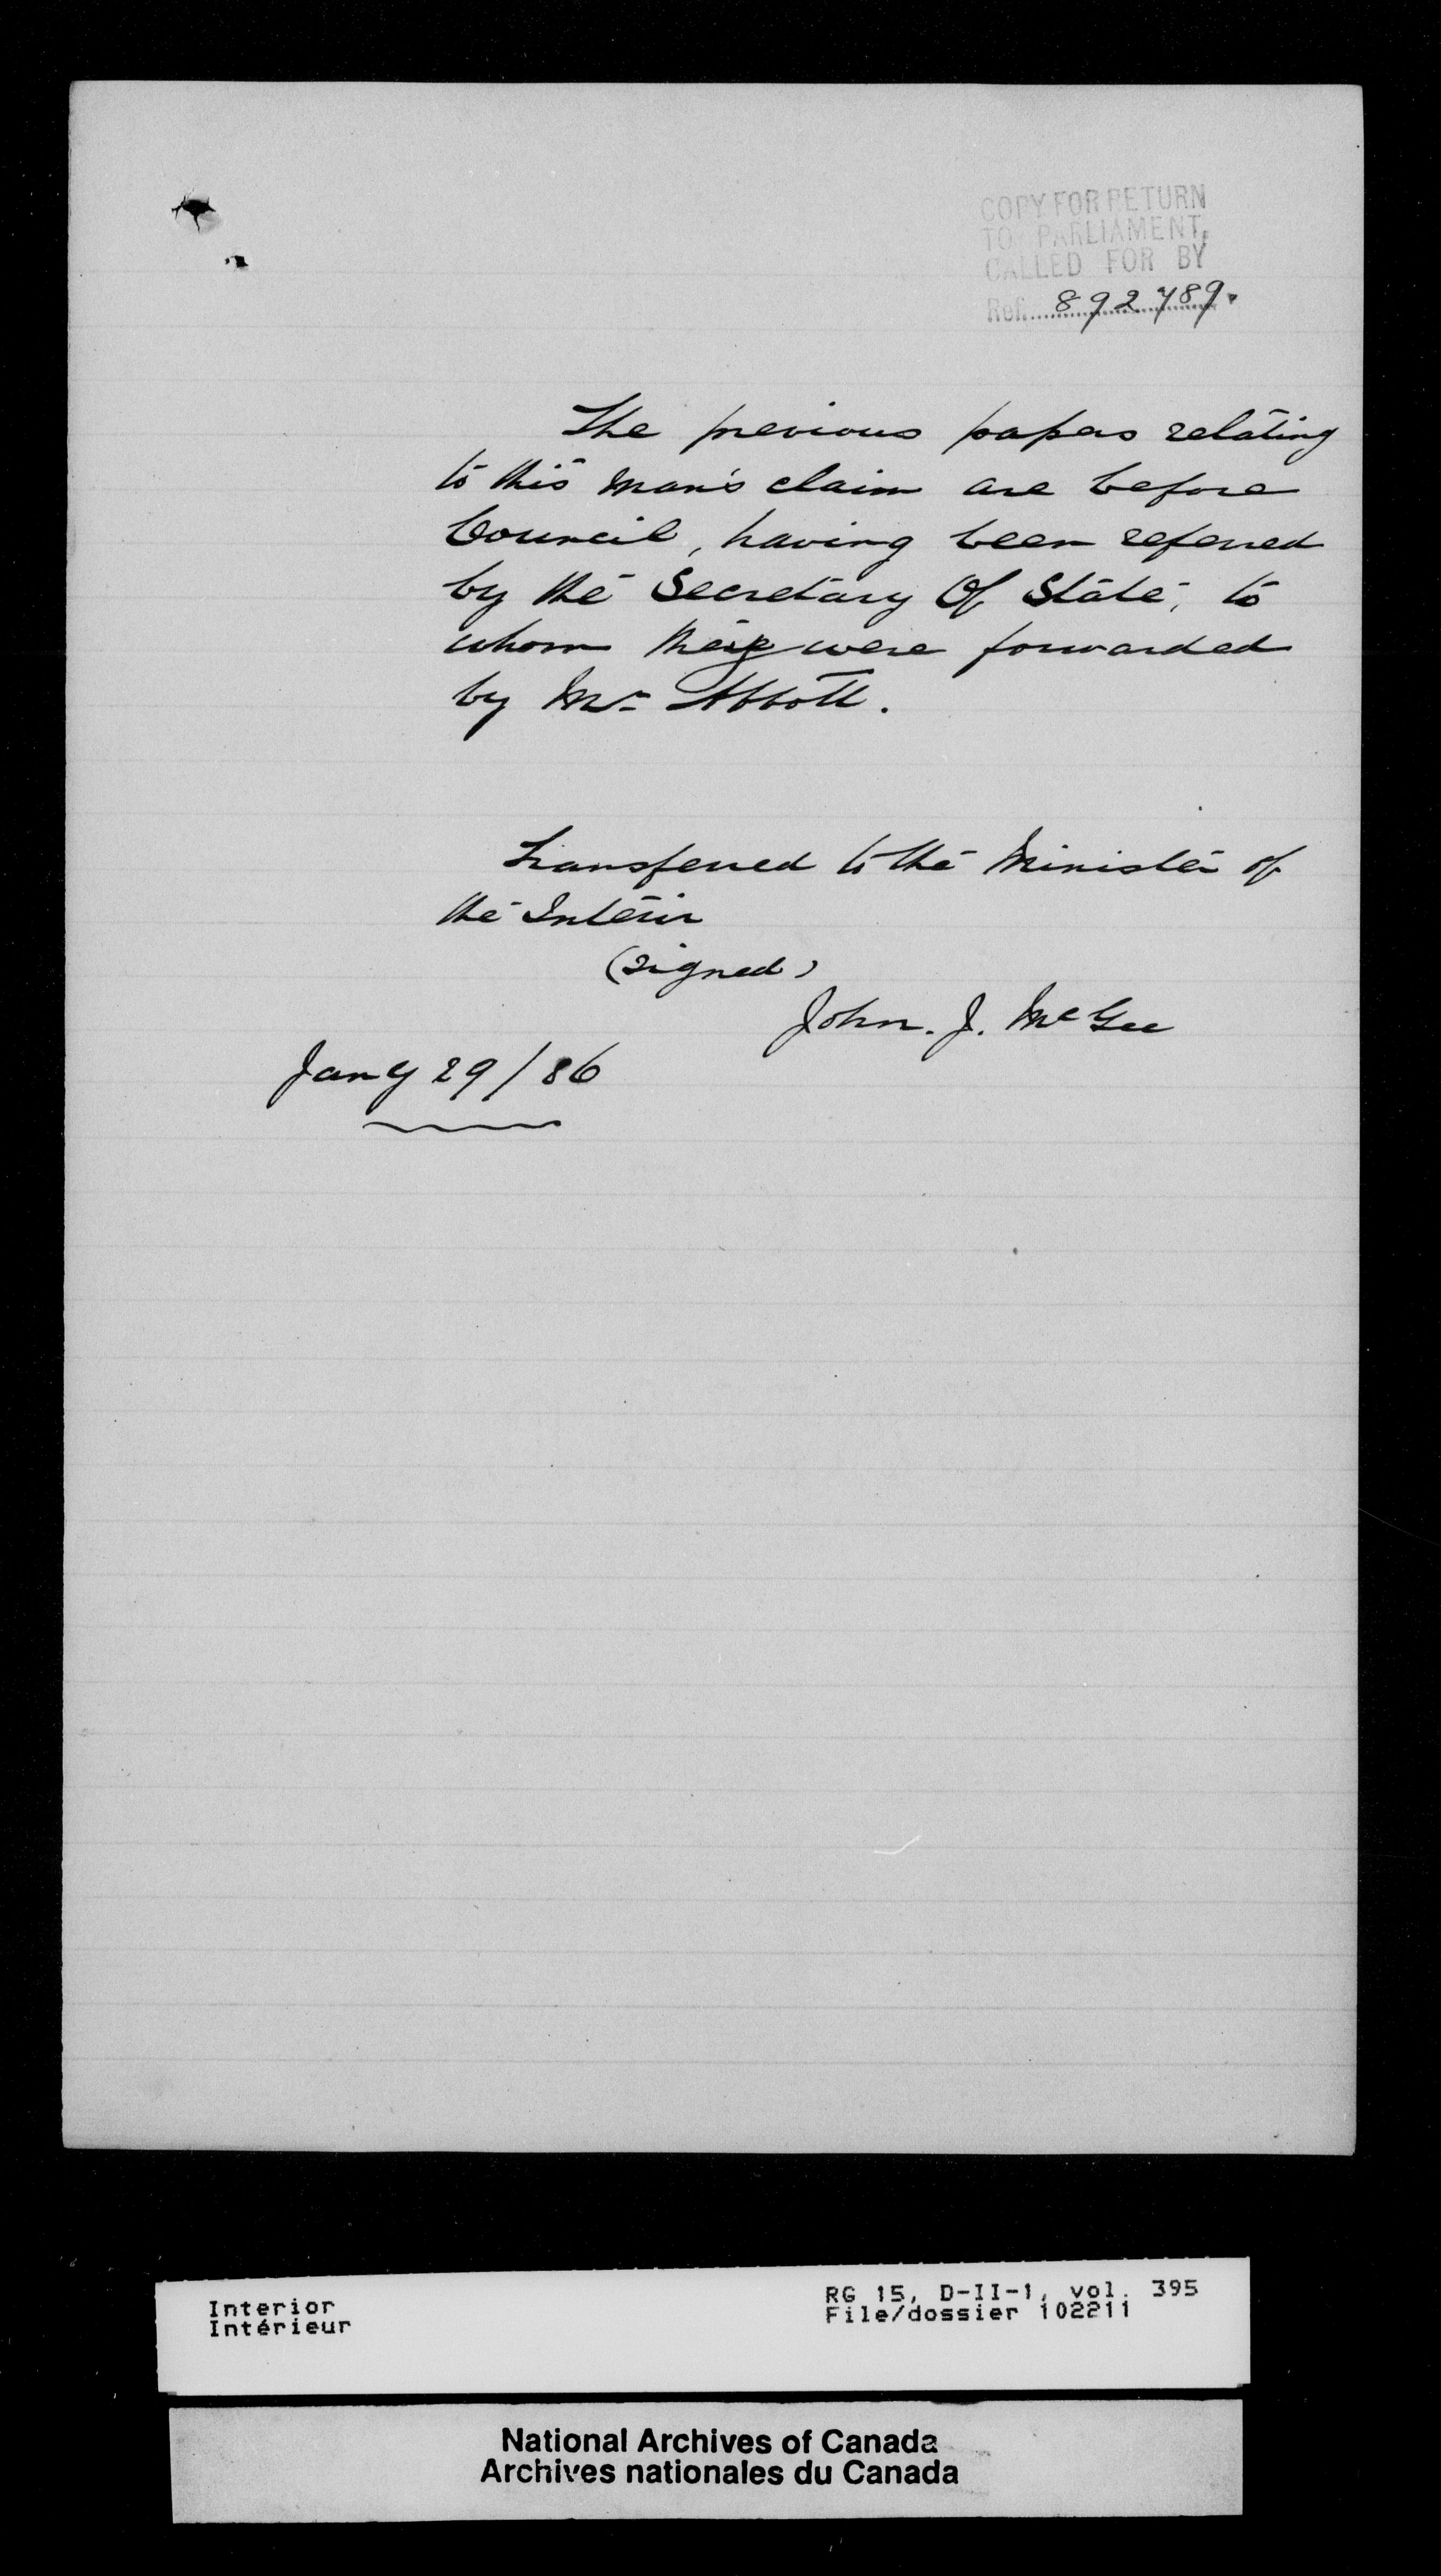 COPY FOR RETURN
TO PARLIAMENT,
CALLED FOR BY
Ref. 892789.
The previous papers relating
to this man's claim are before
Council, having been referred
by the Secretary Of State, to
whom they were forwarded
by Mr Abbott.
Transferred to the Minister of
the Interior
(signed)
John. J. McGee
Jany 29/86
Interior
Intérieur
RG 15, D-II-1, vol. 395
File/dossier 102211
National Archives of Canada
Archives nationales du Canada